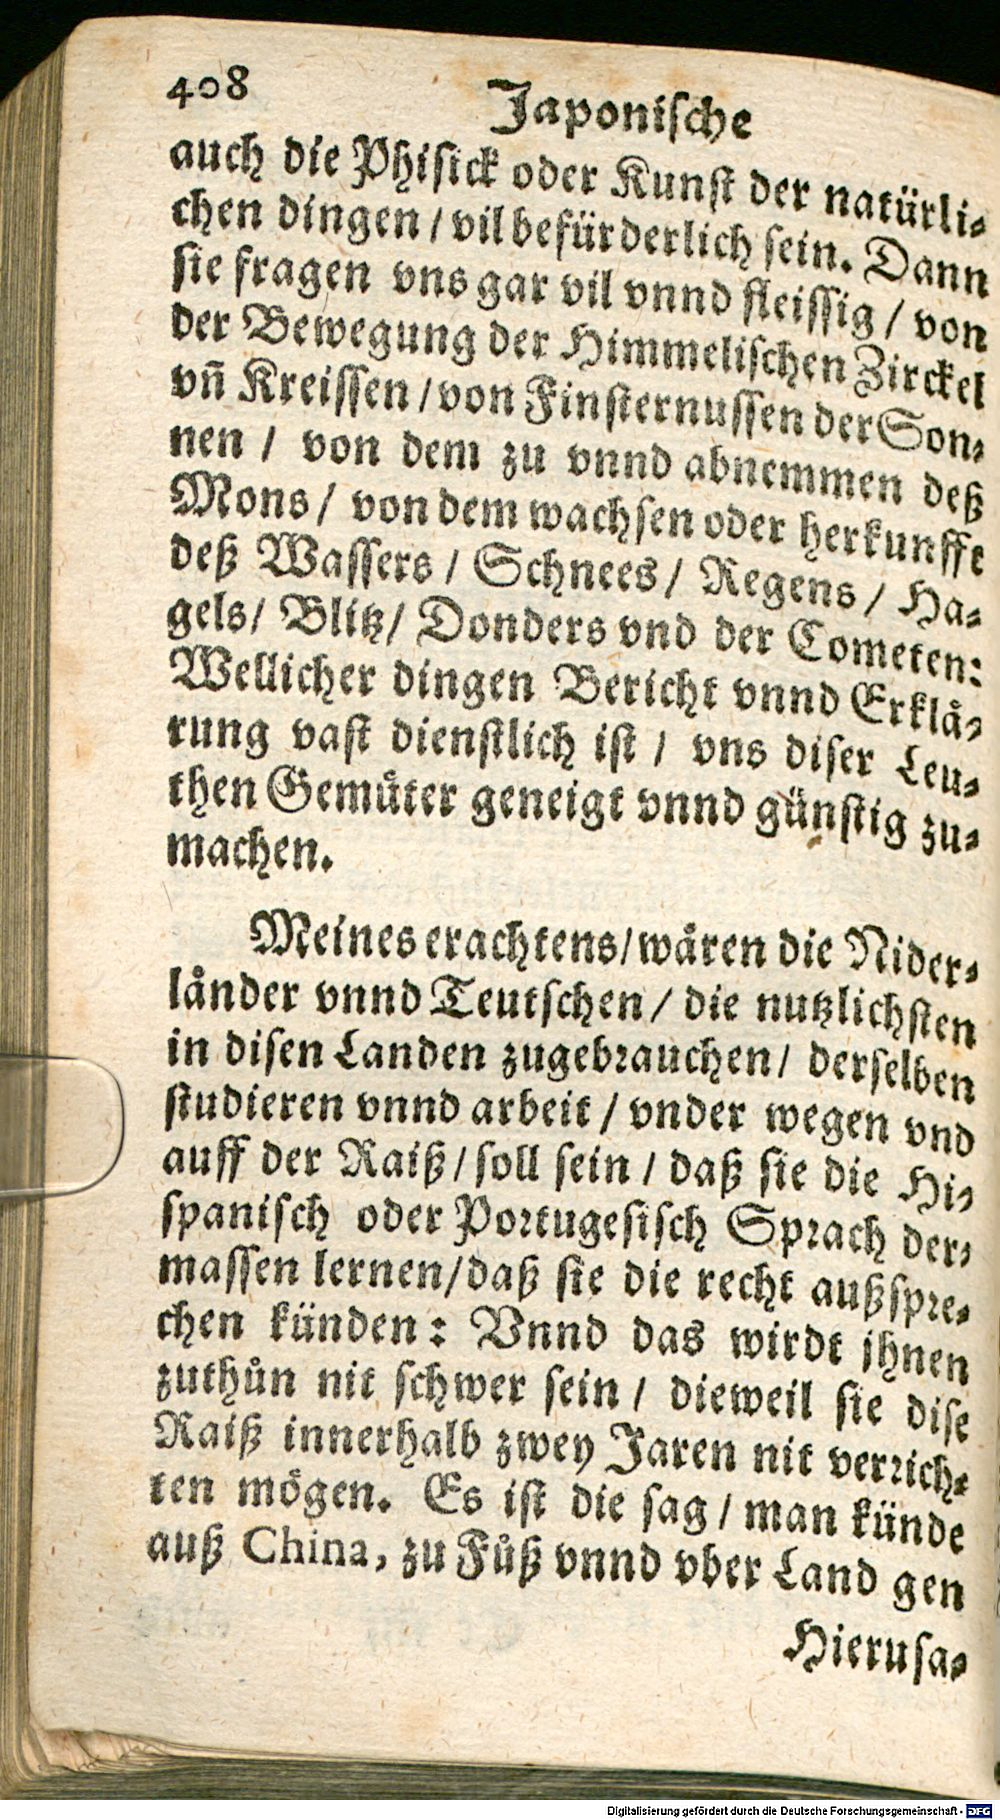 408
Japonische
auch die Phisick oder Kunst der natürli-
chen dingen / vil befürderlich sein. Dann
sie fragen vns gar vil vnnd fleissig / von
der Bewegung der Himmelischen Zirckel
vñ Kreissen / von Finsternussen der Son-
nen / von dem zu vnnd abnemmen deß
Mons / von dem wachsen oder herkunfft
deß Wassers / Schnees / Regens / Ha-
gels / Blitz / Donders vnd der Cometen:
Wellicher dingen Bericht vnnd Erklaͤ-
rung vast dienstlich ist / vns diser Leu-
then Gemuͤter geneigt vnnd günstig zu-
machen.
Meines erachtens / waͤren die Nider-
laͤnder vnnd Teutschen / die nutzlichsten
in disen Landen zugebrauchen / derselben
studieren vnnd arbeit / vnder wegen vnd
auff der Raiß / soll sein / daß sie die Hi-
spanisch oder Portugesisch Sprach der-
massen lernen / daß sie die recht außspre-
chen künden: Vnnd das wirdt ihnen
zuthuͦn nit schwer sein / dieweil sie dise
Raiß innerhalb zwey Jaren nit verrich-
ten moͤgen. Es ist die sag / man künde
auß China, zu Fuͦß vnnd vber Land gen
Hierusa-
Digitalisierung gefördert durch die Deutsche Forschungsgemeinschaft - DFG